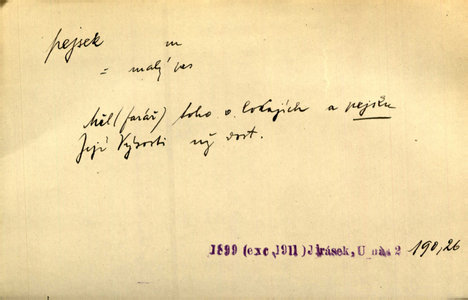 pejsek m
= malý pes
měl (farář) toho o lokajích a pejsku
Její Výsosti už dost.
1899 (exc. 1911) Jirásek, U nás 2 190,26